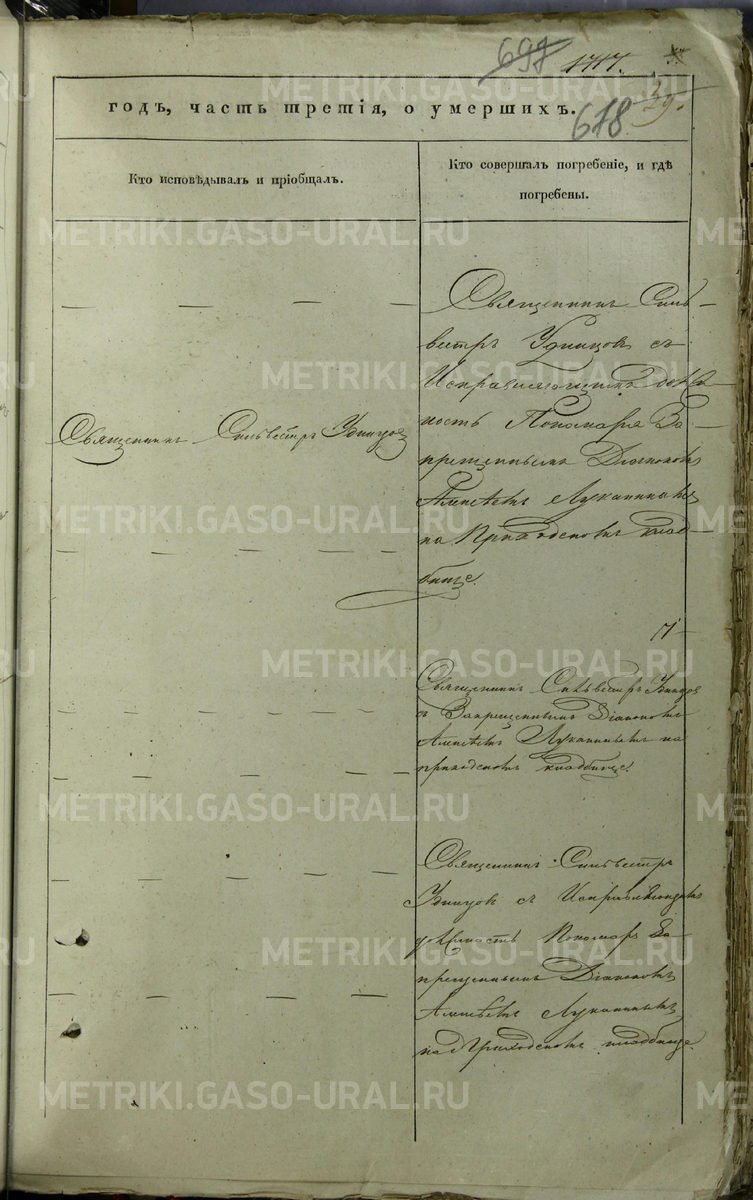 697 1717.
678 39.
годъ, часть третія, о умершихъ.
Кто исповѣдывалъ и пріобщалъ.
Кто совершалъ погребеніе, и гдѣ
погребены.
Священникъ Силь-
вестръ Удинцовъ съ
Исправляющимъ долж-
ность Пономаря За-
прещеннымъ Діакономъ
Алексѣемъ Луканинымъ
на Приходскомъ клад-
бищѣ.
Священникъ Сильвестръ Удинцов
Священникъ Сильвестръ Удинцов
съ Запрещеннымъ Діакономъ
Алексѣемъ Луканинымъ на
приходскомъ кладбищѣ.
Священникъ Сильвестръ
Удинцовъ съ Исправляющимъ
должность Пономаря За-
прещеннымъ Діакономъ
Алексѣемъ Луканинымъ
на Приходскомъ кладбище.
METRIKI.GASO-URAL.RU